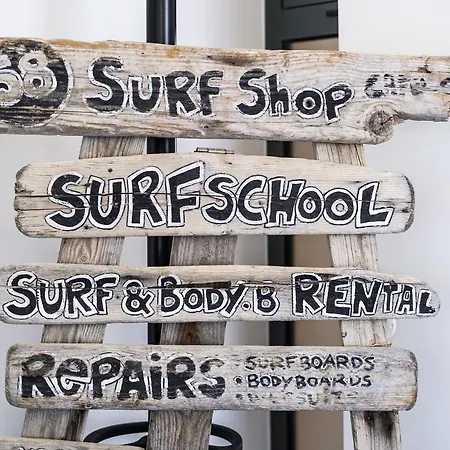 68 SURF SHOP CAFE
SURFSCHOOL
SURF & BODY.B RENTAL
REPAIRS
SURFBOARDS
• BODYBOARDS